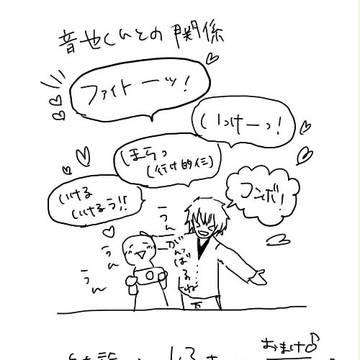 音也くんとの関係
ファイトーッ!
いっけーっ!
(行け的な)
いける
いけるう!!
フンボ!
うん
がんばるね
うん
うん
おまけ♂